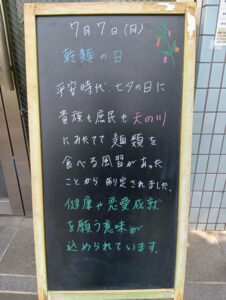 7月7日(月)
乾麺の日
平安時代、七夕の日に
貴族も庶民も天の川
にみたてて麺類を
食べる風習があった
ことから制定されました。
健康や恋愛成就
を願う意味が
込められています。